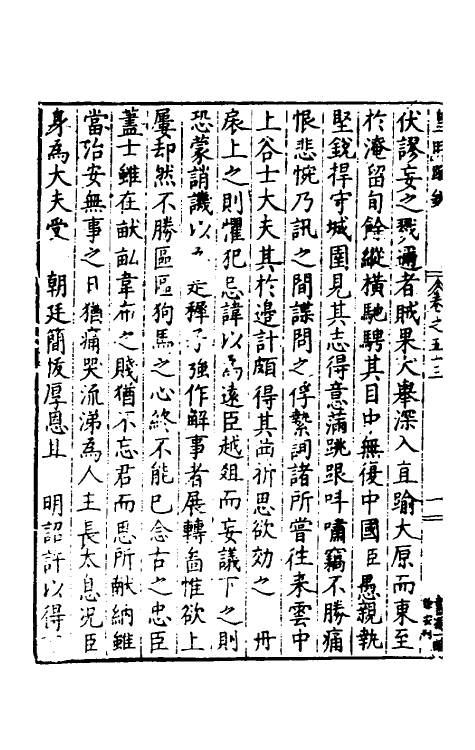 伏謬妄之戮適者賊果大舉深入直踰大原而東至
於淹留旬餘縱橫馳騁其目中無復中國臣愚親執
堅銳捍守城圍見其志得意滿跳踉呌嘯竊不勝痛
恨悲惋乃訊之間諜問之俘縶詢諸所嘗往来雲中
上谷士大夫其於邊計頗得其西祈思欲効之 丹
扆上之則懼犯忌諱以為遠臣越俎而妄議下之則
恐蒙誚譏以 强作解事者展轉啚惟欲上
屢却然不勝區區狗馬之心終不能已念古之忠臣
蓋士雖在畎畝韋布之賤猶不忘君而思所献納雖
當治安無事之日猶痛哭流涕為人主長太息况臣
身為大夫受 朝廷簡恢厚恩且 明詔許以得
卷之五十三